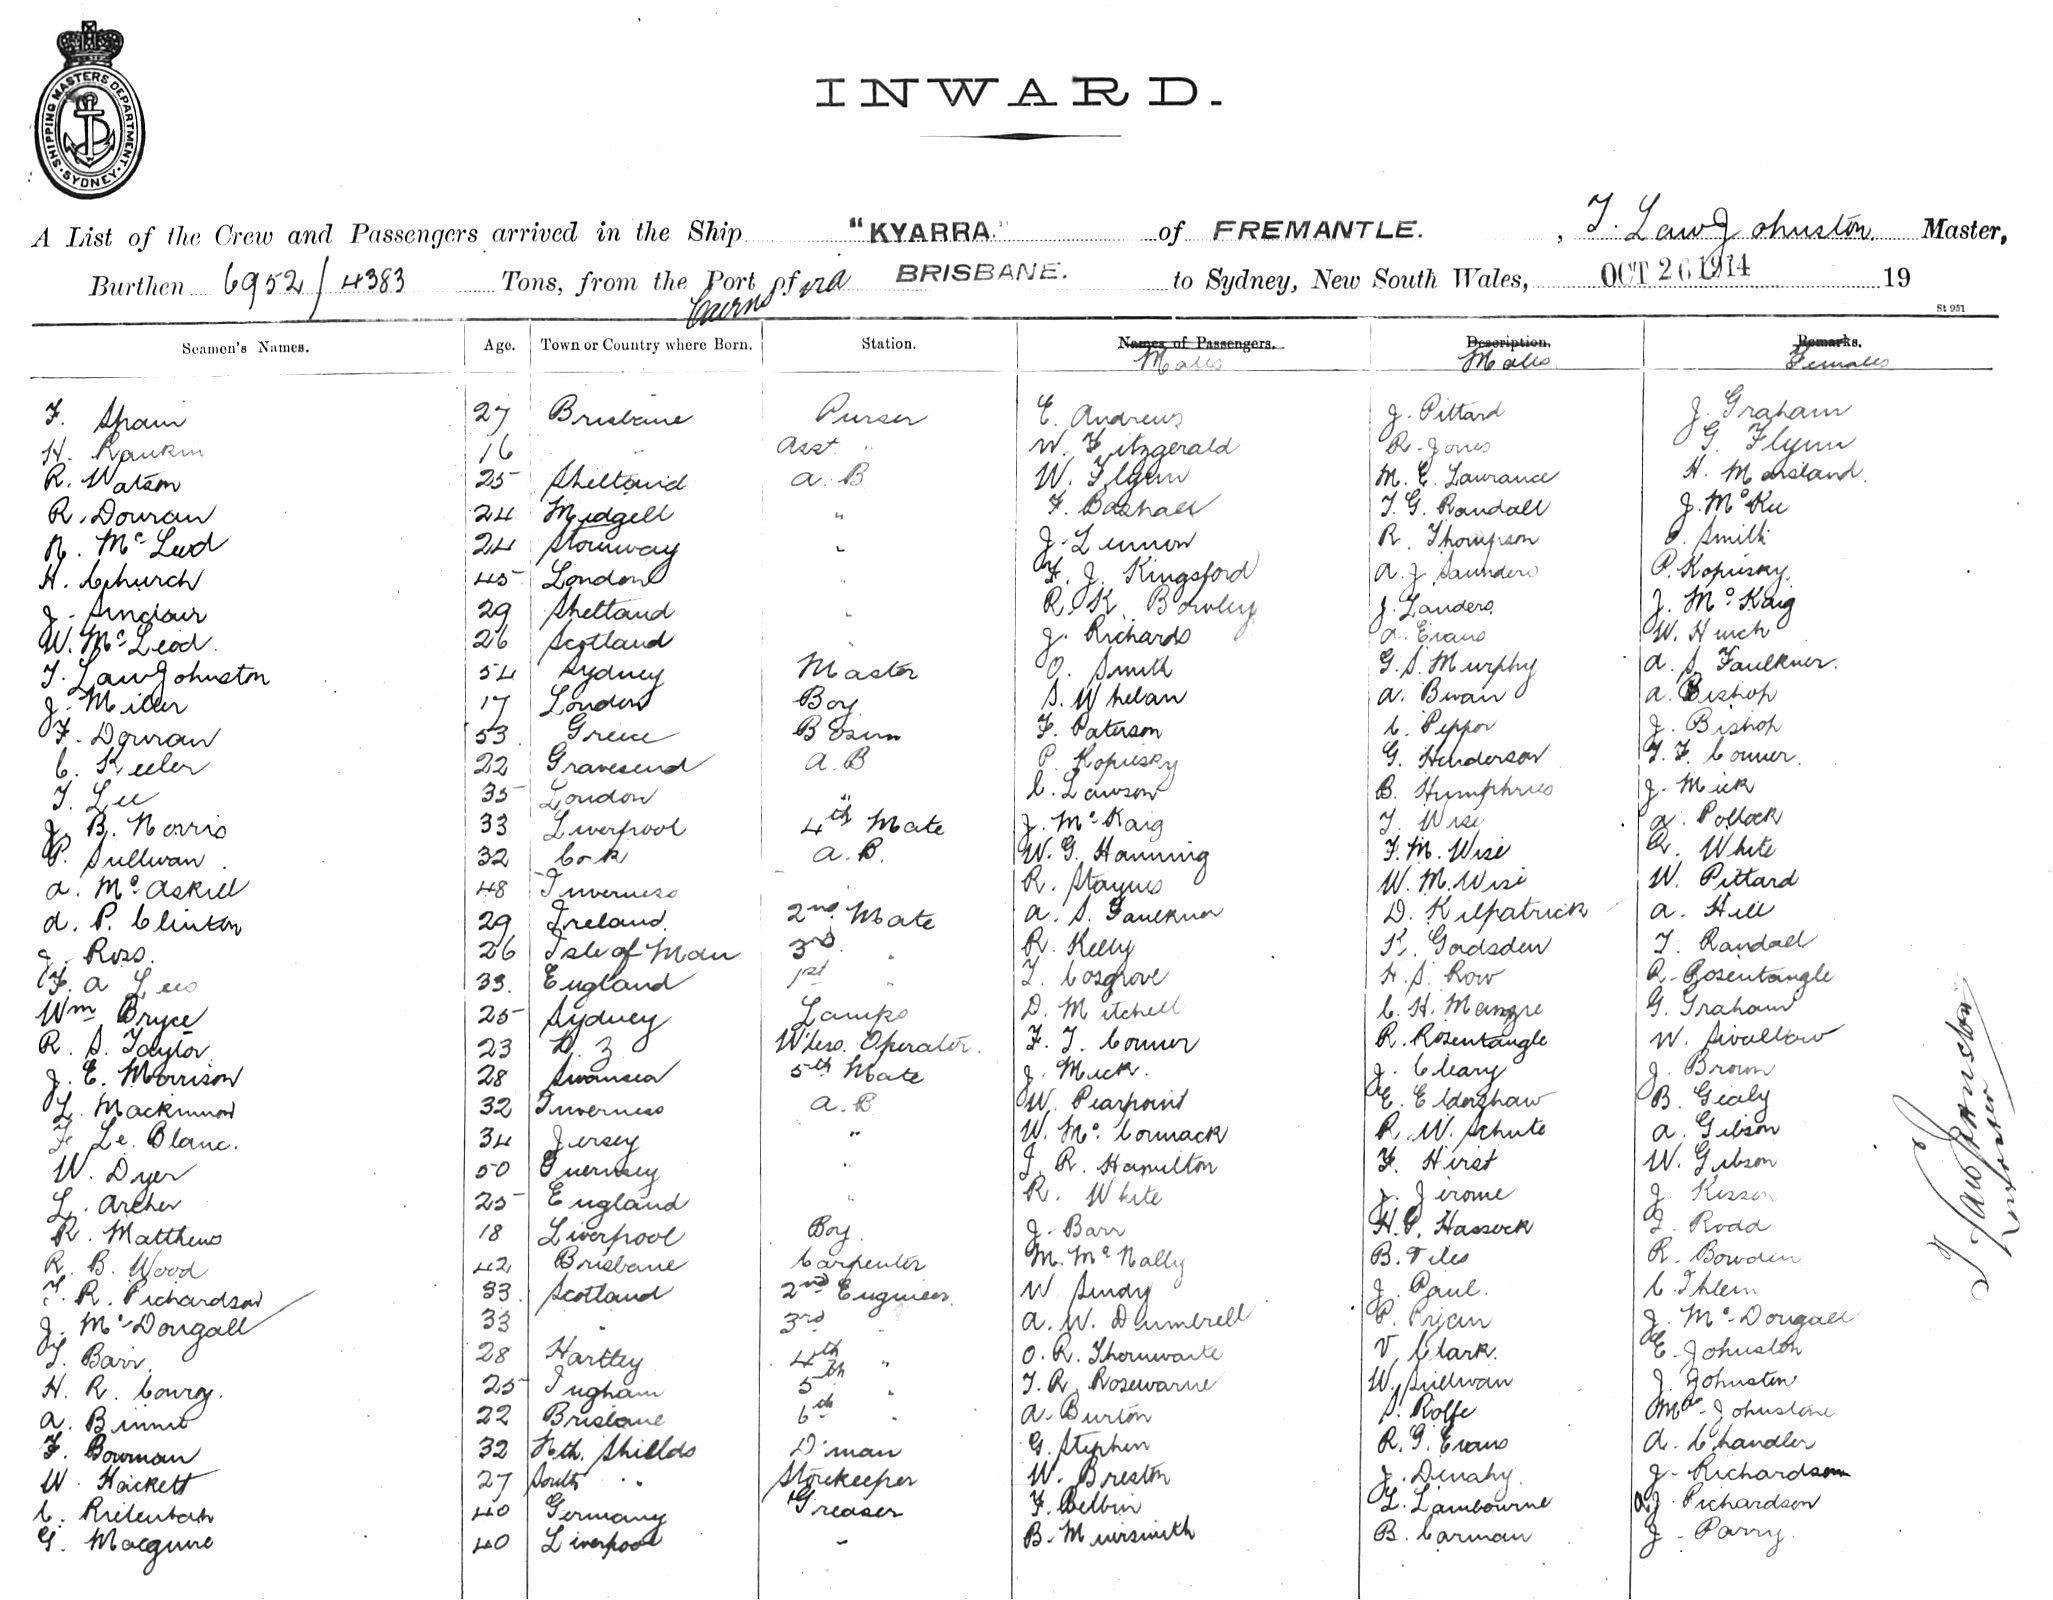 SHIPPING MASTERS DEPARTMENT
SYDNEY
INWARD.
A List of the Crew and Passengers arrived in the Ship "KYARRA." of FREMANTLE. , T. Law Johnston Master,
Burthen 6952/4383 Tons, from the Port of Cairns via BRISBANE. to Sydney, New South Wales, OCT 26 1914 19
St 951
Seamen's Names. Age. Town or Country where Born. Station. Names of Passengers. Description. Remarks.
Males Males Females
F. Spain 27 Brisbane Purser E. Andrews J. Pittard J. Graham
H. Rankin 16 " Asst " W. Fitzgerald R. Jones G. Flynn
R. Watson 25 Shetland A. B W. Flynn M. E. Lawrance H. Marsland.
R. Douran 24 Midgell " F. T. G. Randall J. McKee
N. McLeod 24 Stornway " J. Lennon R. Thompson Smith
H. Church 45 London " F. J. Kingsford A. J Saunders P. Kopiesky.
J. Sinclair 29 Shetland " R. K. Bowley J. Landers. J. McKaig
W. McLeod. 26 Scotland " J. Richards A. Evans W. Hurch
T. Law Johnston 54 Sydney Master O. Smith G. S. Murphy A. S. Faulkner.
J. Miller 17 London Boy S. Whelan A. Bwan A. Bishop
F. Douran 53 Greece Bosun F. Paterson C. Pepper J. Bishop
C. Keeler 22 Gravesend A. B P. Kopiesky G. Henderson T. F. Conner.
T. Lee 35 London " C. Lawson B. Humphries J. Mick
J. B. Norris 33 Liverpool 4th Mate J. McKaig T. Wise A. Pollock
P. Sullivan 32 Cork A. B. W. G. Hanning F. M. Wise R. White
A. McAskill 48 Inverness " R. Staynes W. M. Wise W. Pittard
A. P. Clinton 29 Ireland. 2nd Mate A. S. Faulkner D. Kilpatrick A. Hill
J. Ross. 26 Isle of Man 3rd " R. Kelly K. Gadsden T. Randall
F. A Lees 33. England 1st " T. Cosgrove H. S. Row R. Rosentangle
Wm Bryce 25 Sydney Lamps D. Mitchell C. H. G. Graham
R. S. Taylor 23 N. Z W'less. Operator. F. T. Conner R. Rosentangle W. Sivallow
J. E. Morrison 28 Swansea 5th Mate J. Mick. J. Cleary J. Brown
L. Mackinnon 32 Inverness A. B W. Pearpoint E. Eldershaw B. Gealy
F Le. Blanc. 34 Jersey " W. McCormack R. W. Schute A. Gibson
W. Dyer 50 Guernsey " J. R. Hamilton F. Hirst W. Gibson
L. Archer 25 England " R. White J. Jerome J.
R. Matthews 18 Liverpool Boy J. Barr H. G. Hassock Rodd
R. B. Wood 42 Brisbane Carpenter M. McNally B. Tiles R. Bowden
T. R. Richardson 33 Scotland 2nd Engineer W Sindy J. Paul. C. Thlein
J. McDougall 33 " 3rd " A. W. Dumbrell P. Ryan J. McDougall
T. Barr 28 Hartley 4th " O. R. Thornwaite V. Clark. E. Johnston
H. R. Conroy. 25 Ingham 5th " T. R. Rosewarne W. Sullivan J. Johnston
A. Binnie 22 Brisbane 6th " A. Burton S. Rolfe Johnstone
F. Bowman 32 Nth. Shields D'man G. Stephen R. G. Evans A. Chandler
W. Hackett 27 South " " Storekeeper W. Breston J. Denahy. J. Richardson
C. Rietenbah 40 Germany Greaser F. Belbin L. Lambourne A J. Richardson
G. Macguire 40 Liverpool " B. Muirsmith B. Carman J. Parry.
T Law Johnston
Master